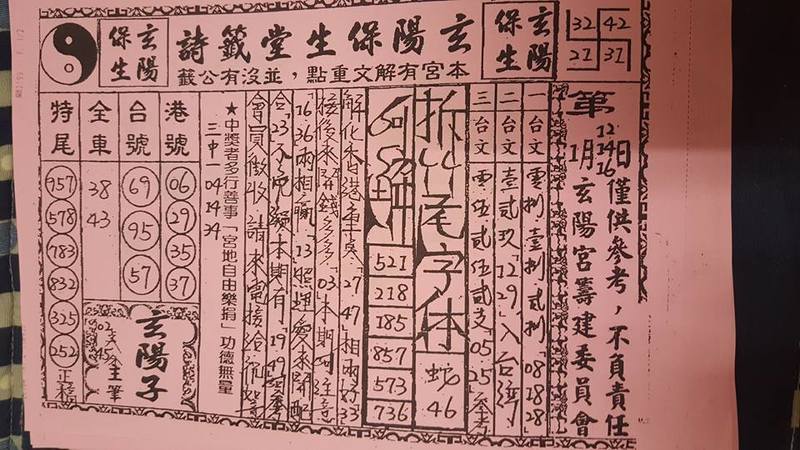 玄陽保生
玄陽保生堂籤詩
本宮有解文重點，並沒有公籤
玄陽保生
32 42
21 31
第
12 14 16
1月 日
僅供參考，不負責任
玄陽宮籌建委員會
一台文 零捌壹捌貳捌「08 18 28
二台文 壹貳玖「12 29」入台灣
三台文 零伍貳伍貳支「05 25」參考
拆 尾字体
蛇 46
521
218
185
857
573
736
解化香港重点「27 47」相兩好33
接後來開錢多多「03」本期
16 36兩相贏「13」照理愛來開
合「23」不免疑本期有「19 49
會員徵收 請來電接給你
★中獎者多行善事「宮地自由樂捐」功德無量
三中一 04 14 34
港號
06
29
35
37
台號
69
95
57
全車
38
43
特尾
957
578
783
832
325
252
玄陽子
02 45
主筆